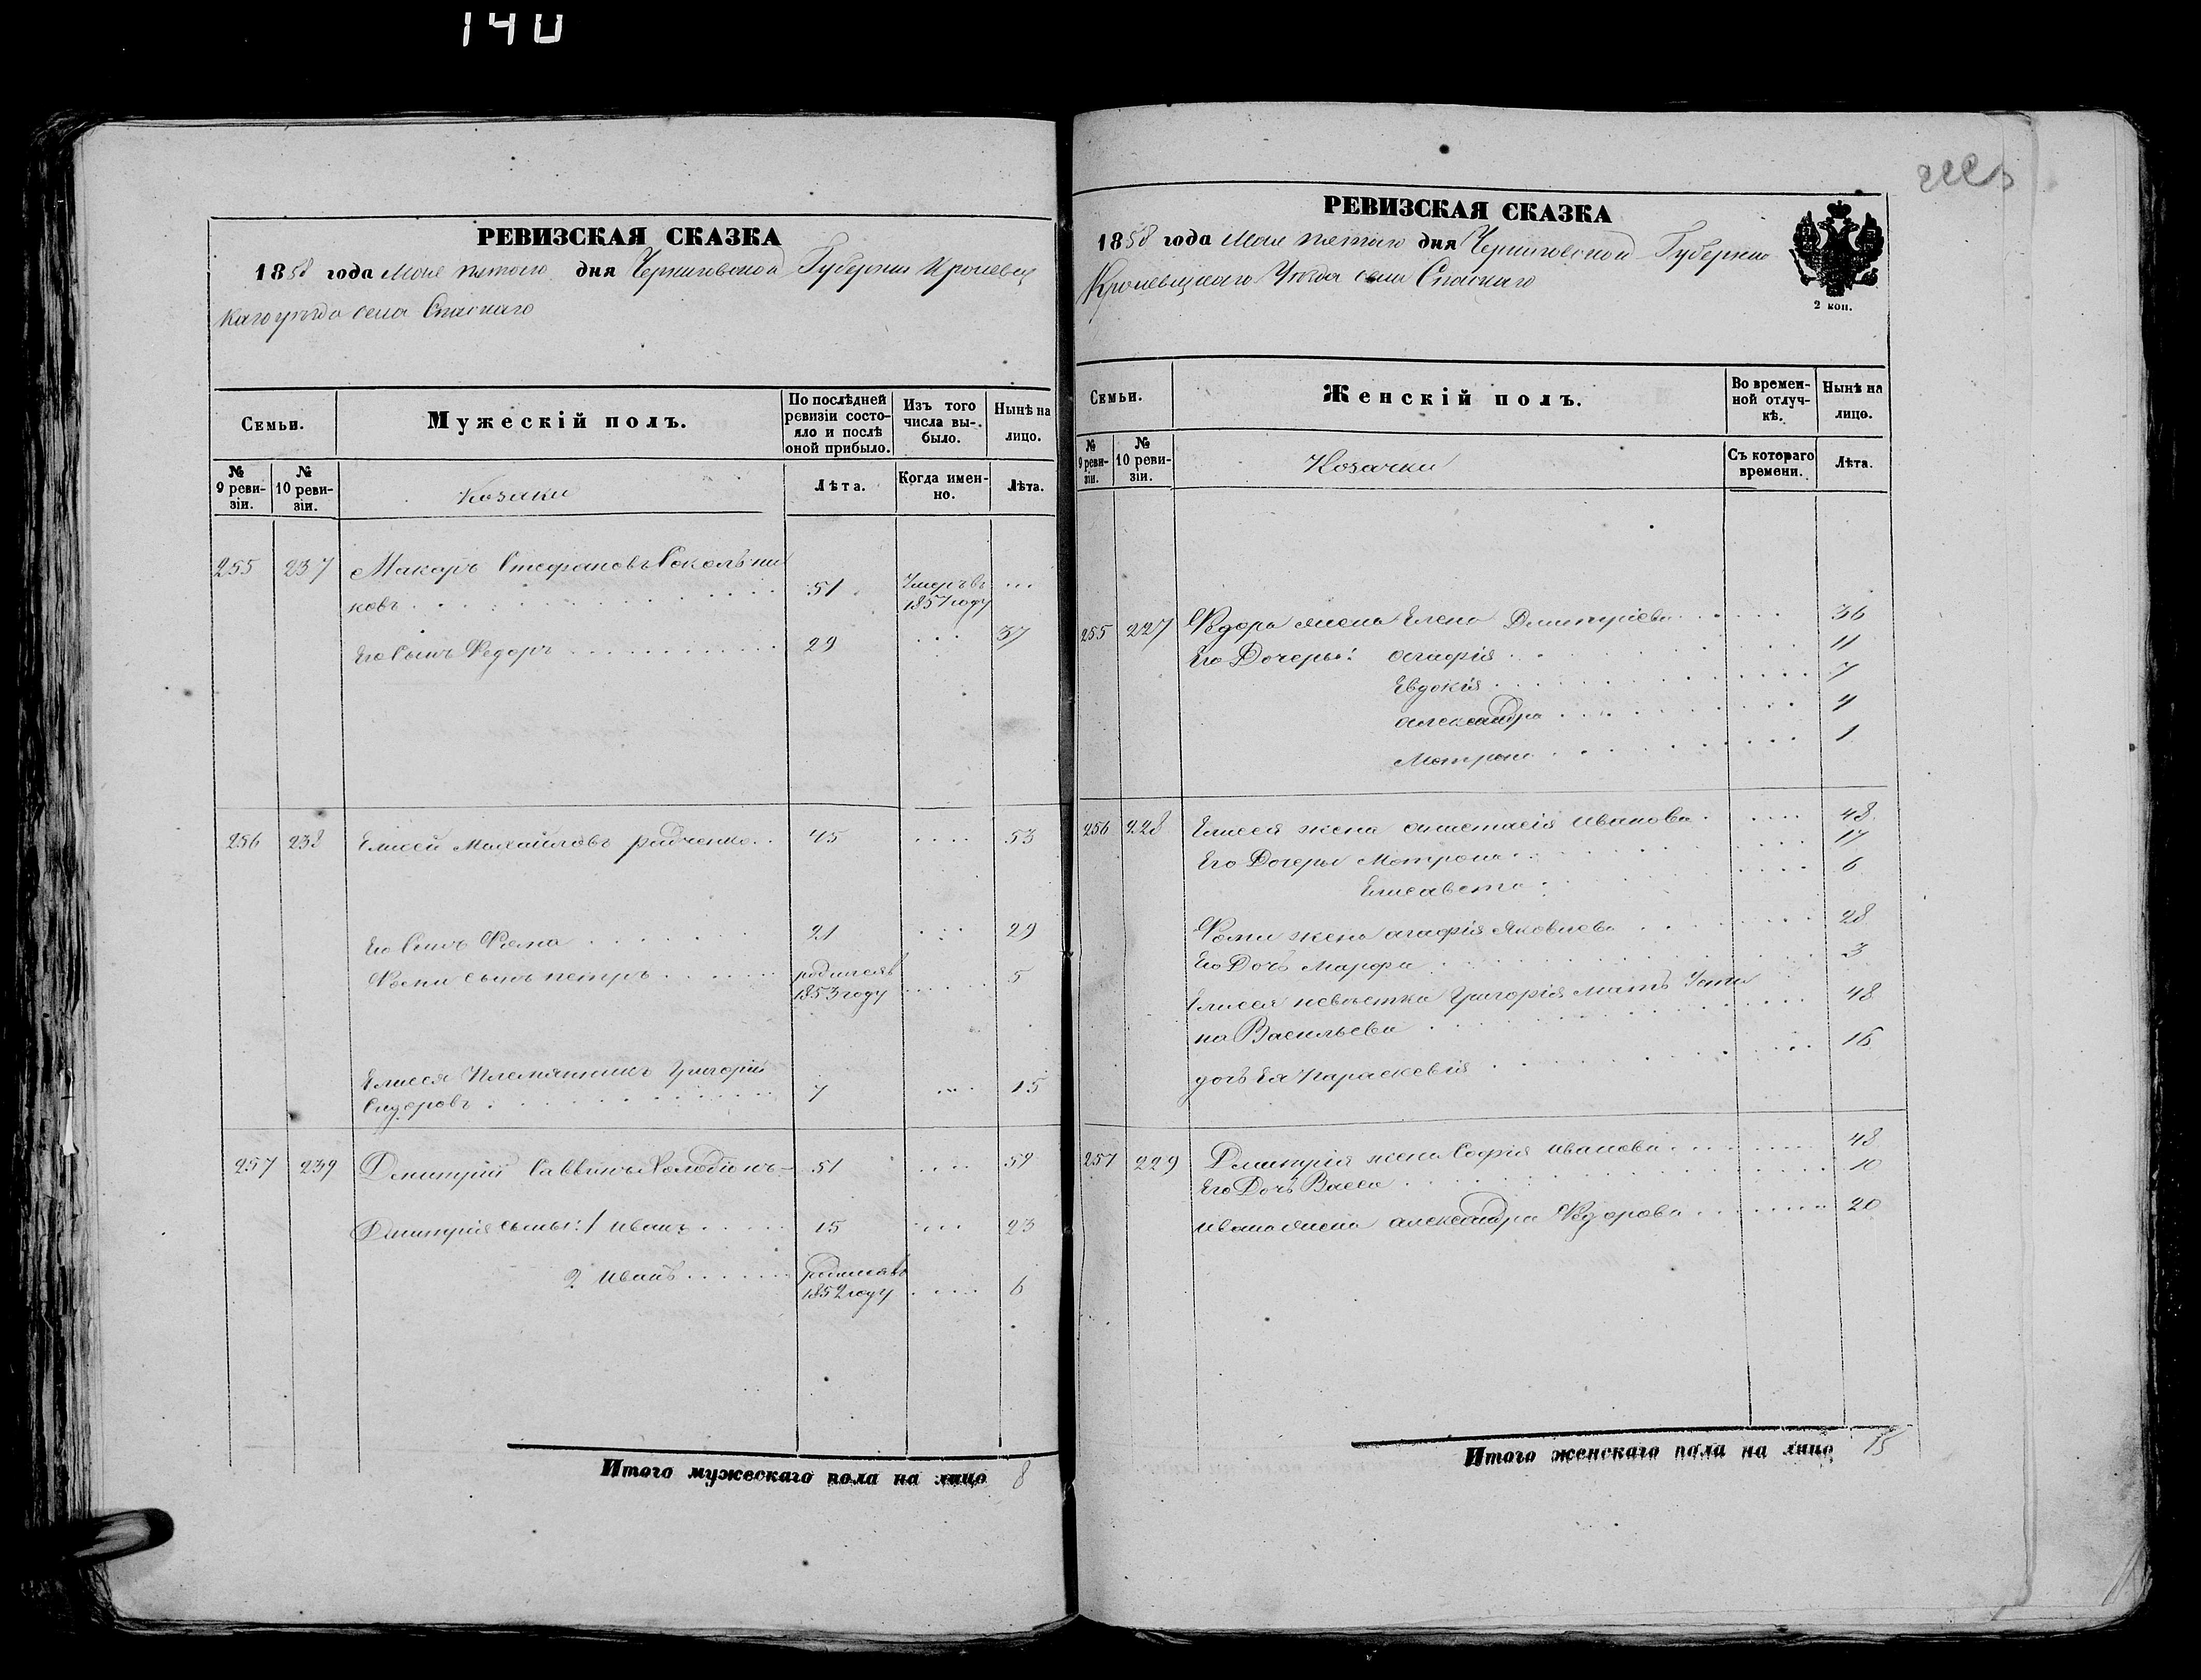 140
РЕВИЗСКАЯ СКАЗКА
1858 года Мая пятого дня Черниговской Губернии Кролевец
каго уѣзда села Спаскаго
Семьи.
Мужескій полъ.
По послѣдней ревизіи состояло и послѣ оной прибыло.
Изъ того числа вы-было.
Нынѣ на лицо.
№ 9 реви-зіи.
№ 10 реви-зіи.
Козаки
Лѣта.
Когда имен-но.
Лѣта.
255 237 Макаръ Стефановъ Сокольни
ковъ 51 Умеръ въ 1857 году ...
Его Сынъ Федоръ 29 ... 37
256 238 Елисей Михайловъ радченко 45 .... 53
Его Сынъ Фома 21 ... 29
Фомы сынъ петръ родился въ 1853 году ..... 5
Елисея Племянникъ Григорій
Сидоровъ 7 ... 15
257 239 Дмитрий Саввинъ 51 .... 59
Дмитрія сыны: 1 иванъ 15 .... 23
2 иванъ родился въ 1852 году .... 6
Итого мужескаго пола на лицо 8
РЕВИЗСКАЯ СКАЗКА
1858 года Мая пятого дня Черниговской Губернии
Кролевецкаго Уѣзда села Спаскаго
2 коп.
Семьи.
Женскій полъ.
Во времен-ной отлуч-кѣ.
Нынѣ на лицо.
№ 9 реви-зіи.
№ 10 реви-зіи.
Козачки
Съ котораго времени.
Лѣта.
255 227 Федора жена Елена Дмитріева 36
Его Дочеры: агафія 11
Евдокія 7
александра 4
Мотрона 1
256 228 Елисея жена анастасія иванова 48
Его Дочеры Мотрона 17
Елисавета 6
Фомы жена агафія Яковлева 28
Его Дочь Марфа 3
Елисея невѣстка Григорія мать Усти
на Васильева 48
дочь Ея Параскевія 16
257 229 Дмитрія жена Софія иванова 48
Его Дочь Васса 10
ивана жена александра Федорова 20
Итого женскаго пола на лицо 15